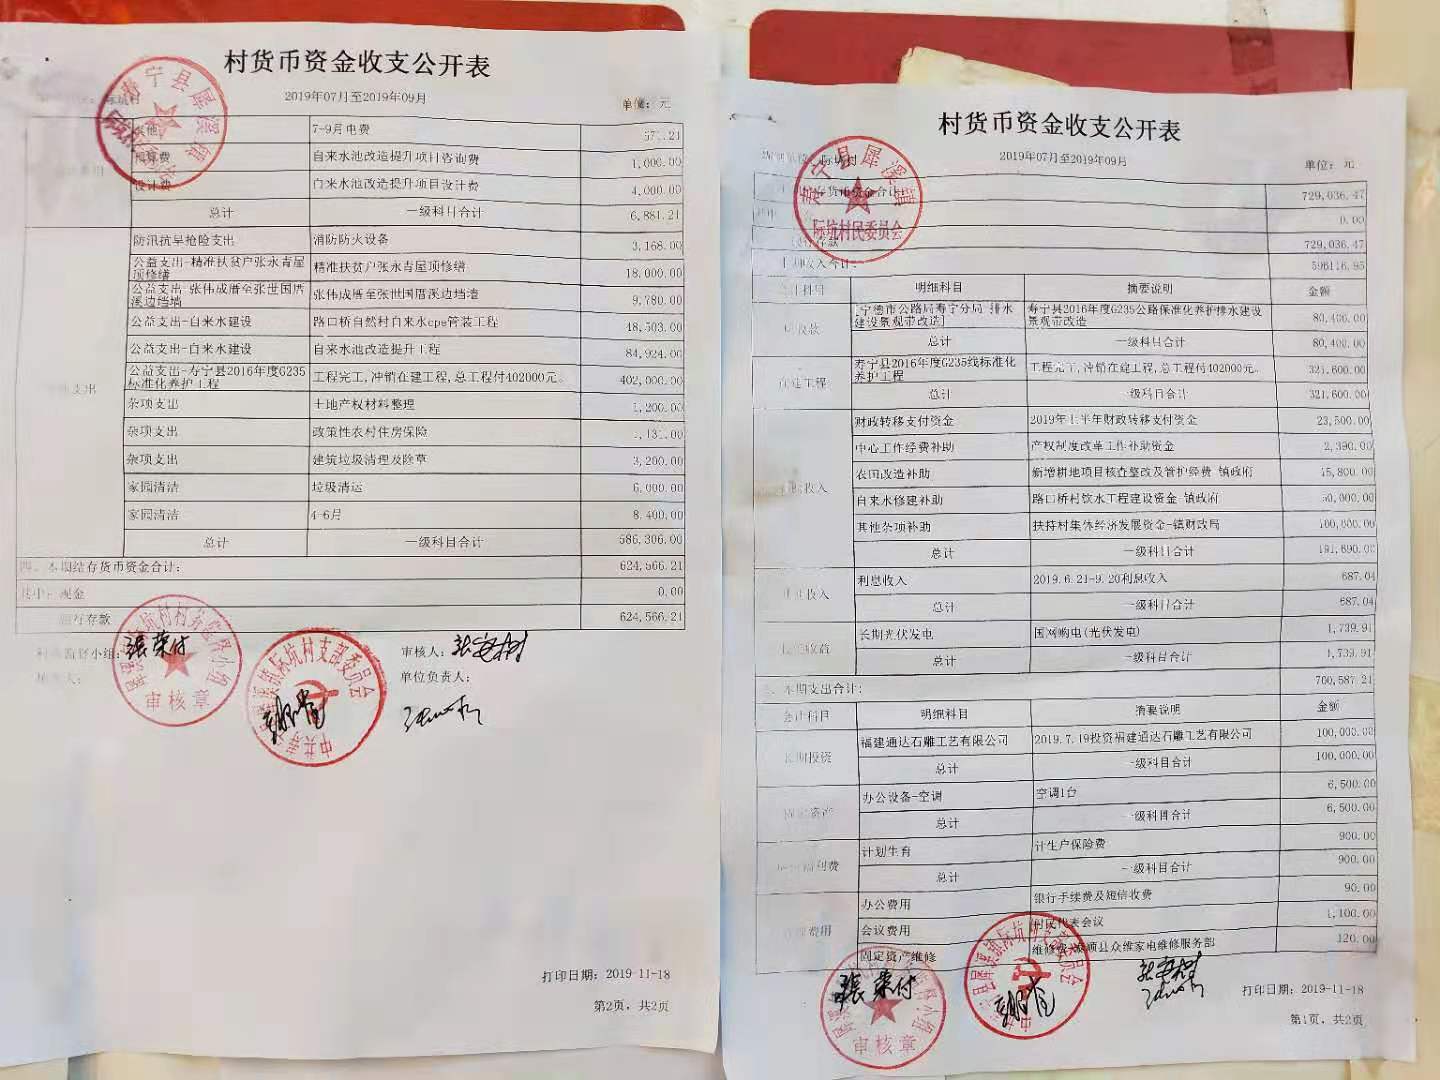 村货币资金收支公开表
2019年07月至2019年09月
单位: 元
其他 7-9月电费 571.21
预算费 自来水池改造提升项目咨询费 1,000.00
设计费 自来水池改造提升项目设计费 4,000.00
总计 一级科目合计 6,881.21
防汛抗旱抢险支出 消防防火设备 3,168.00
公益支出-精准扶贫户张永青屋顶修缮 精准扶贫户张永青屋顶修缮 18,000.00
公益支出-张伟成厝至张世国厝溪边垱墙 张伟成厝至张世国厝溪边垱墙 9,780.00
公益支出-自来水建设 路口桥自然村自来水cpe管装工程 48,503.00
公益支出-自来水建设 自来水池改造提升工程 84,924.00
公益支出-寿宁县2016年度G235标准化养护工程 工程完工,冲销在建工程,总工程付402000元。 402,000.00
支出
杂项支出 土地产权材料整理 1,200.00
杂项支出 政策性农村住房保险 1,131.00
杂项支出 建筑垃圾清理及除草 3,200.00
家园清洁 垃圾清运 6,000.00
家园清洁 4-6月 8,400.00
总计 一级科目合计 586,306.00
四、本期结存货币资金合计: 624,566.21
其中: 现金 0.00
银行存款 624,566.21
监督小组: 张荣付
审核人:
单位负责人:
寿宁县犀溪镇
村务监督小组
审核章
际坑村支部委员会
中共寿
打印日期: 2019-11-18
第2页, 共2页
村货币资金收支公开表
2019年07月至2019年09月
单位: 元
寿宁县犀溪镇
际坑村民委员会
存货币资金合计 729,036.47
0.00
存款 729,036.47
收入合计: 596116.95
会计科目 明细科目 摘要说明 金额
应收款 [宁德市公路局寿宁分局-排水建设景观带改造] 寿宁县2016年度G235公路保准化养护排水建设景观带改造 80,400.00
总计 一级科目合计 80,400.00
在建工程 寿宁县2016年度G235线标准化养护工程 工程完工,冲销在建工程,总工程付402000元。 321,600.00
总计 一级科目合计 321,600.00
财政转移支付资金 2019年上半年财政转移支付资金 23,500.00
中心工作经费补助 产权制度改革工作补助资金 2,390.00
收入
农田改造补助 新增耕地项目核查整改及管护经费-镇政府 15,800.00
自来水修建补助 路口桥村饮水工程建设资金-镇政府 50,000.00
其他杂项补助 扶持村集体经济发展资金-镇财政局 100,000.00
总计 一级科目合计 191,690.00
收入 利息收入 2019.6.21-9.20利息收入 687.04
总计 一级科目合计 687.04
收益 长期光伏发电 国网购电(光伏发电) 1,739.91
总计 一级科目合计 1,739.91
三、本期支出合计: 700,587.21
会计科目 明细科目 摘要说明 金额
长期投资 福建通达石雕工艺有限公司 2019.7.19投资福建通达石雕工艺有限公司 100,000.00
总计 一级科目合计 100,000.00
固定资产 办公设备-空调 空调1台 6,500.00
总计 一级科目合计 6,500.00
福利费 计划生育 计生户保险费 900.00
总计 一级科目合计 900.00
办公费用 银行手续费及短信收费 90.00
费用 会议费用 村民代表会议 1,100.00
固定资产维修 维修费-泰顺县众维家电维修服务部 120.00
张荣付
审核章
打印日期: 2019-11-18
第1页, 共2页